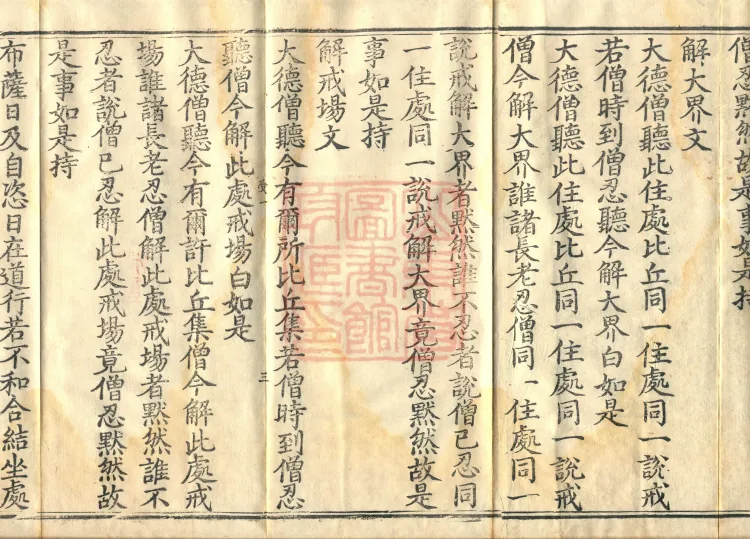 僧忍默然故是事如是持
解大界文
大德僧聽此住處比丘同一住處同一說戒
若僧時到僧忍聽今解大界白如是
大德僧聽此住處比丘同一住處同一說戒
僧今解大界誰諸長老忍僧同一住處同一
說戒解大界者默然誰不忍者說僧已忍同
一住處同一說戒解大界竟僧忍默然故是
事如是持
解戒場文
大德僧聽今有爾所比丘集若僧時到僧忍
聽僧今解此處戒場白如是
大德僧聽今有爾許比丘集僧今解此處戒
場誰諸長老忍僧解此處戒場者默然誰不
忍者說僧已忍解此處戒場竟僧忍默然故
是事如是持
布薩日及自恣日在道行若不和合結坐處